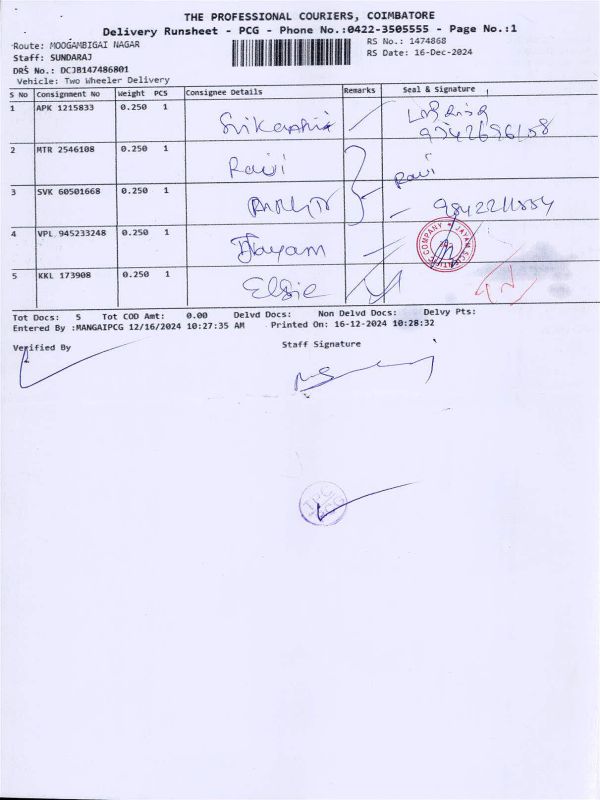 THE PROFESSIONAL COURIERS, COIMBATORE
Delivery Runsheet - PCG - Phone No.:0422-3505555 - Page No.:1
Route: MOOGAMBIGAI NAGAR
RS No.: 1474868
Staff: SUNDARAJ
RS Date: 16-Dec-2024
DRS No.: DCJB147486801
Vehicle: Two Wheeler Delivery
S No Consignment No Weight PCS Consignee Details Remarks Seal & Signature
1 APK 1215833 0.250 1 Srikanth
2 MTR 2546108 0.250 1 Ravi Ravi
3 SVK 60501668 0.250 1
4 VPL 945233248 0.250 1 Jayam
5 KKL 173908 0.250 1 Elgie
Tot Docs: 5 Tot COD Amt: 0.00 Delvd Docs: Non Delvd Docs: Delvy Pts:
Entered By :MANGAIPCG 12/16/2024 10:27:35 AM Printed On: 16-12-2024 10:28:32
Verified By
Staff Signature